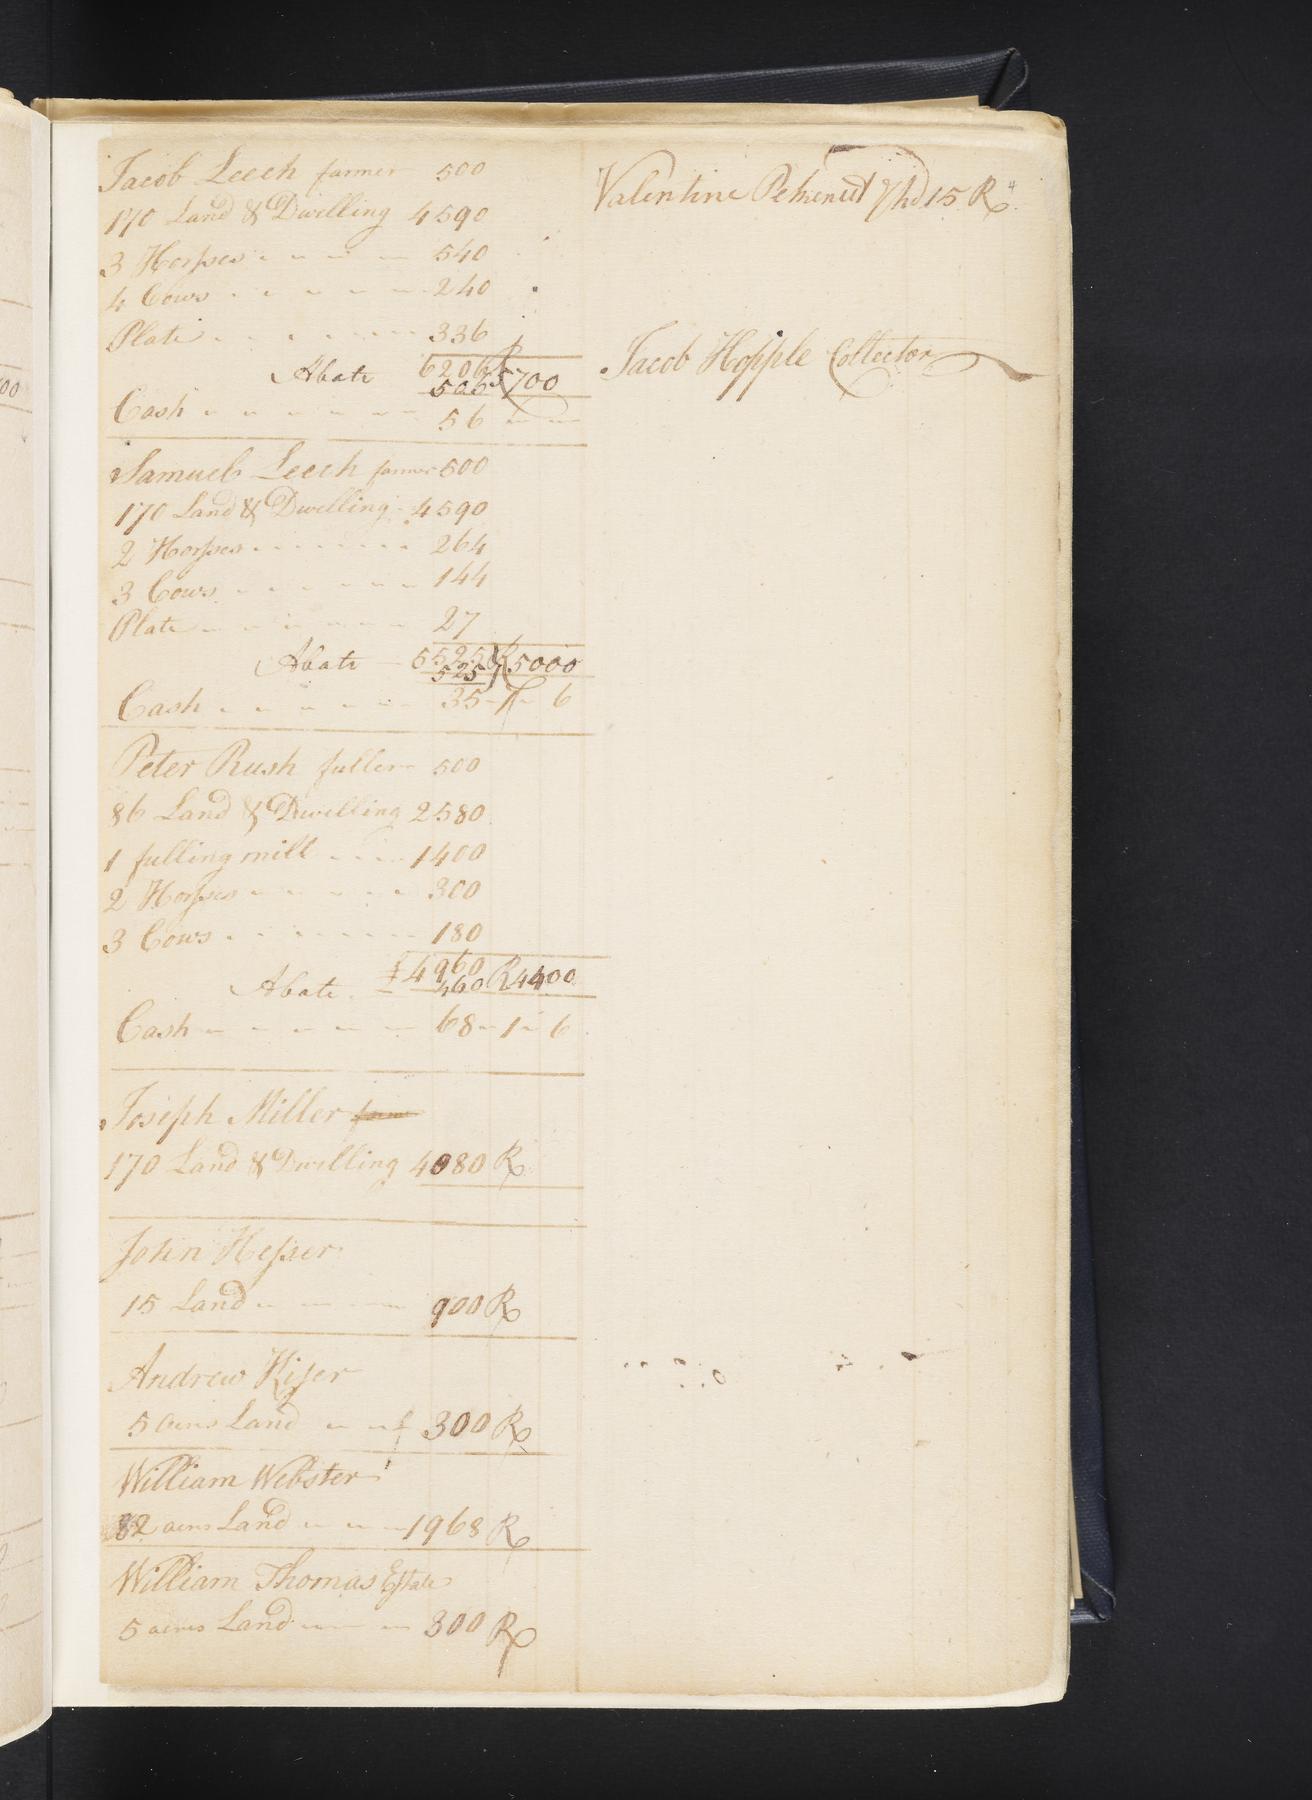 Jacob Leech farmer 500
170 Land & Dwelling 4590
3 Horses 540
4 Cows 240
Plate 336
Abate 6206 R 5700
506
Cash 56
Samuel Leech farmer 500
170 Land & Dwelling 4590
2 Horses 264
3 Cows 144
Plate 27
Abate 5525 R 5000
525
Cash 35 - 1 - 6
Peter Rush fuller 500
86 Land & Dwelling 2580
1 fulling mill 1400
2 Horses 300
3 Cows 180
£ 4960 R 4400
Abate 460
Cash 68 - 1 - 6
Joseph Miller
170 Land & Dwelling 4080 R
John Hesser
15 Land 900 R
Andrew Kiser
5 acres Land 300 R
William Webster
82 acres Land 1968 R
William Thomas Estate
5 acres Land 300 R
Valentine 15 R
Jacob Hopple Collector